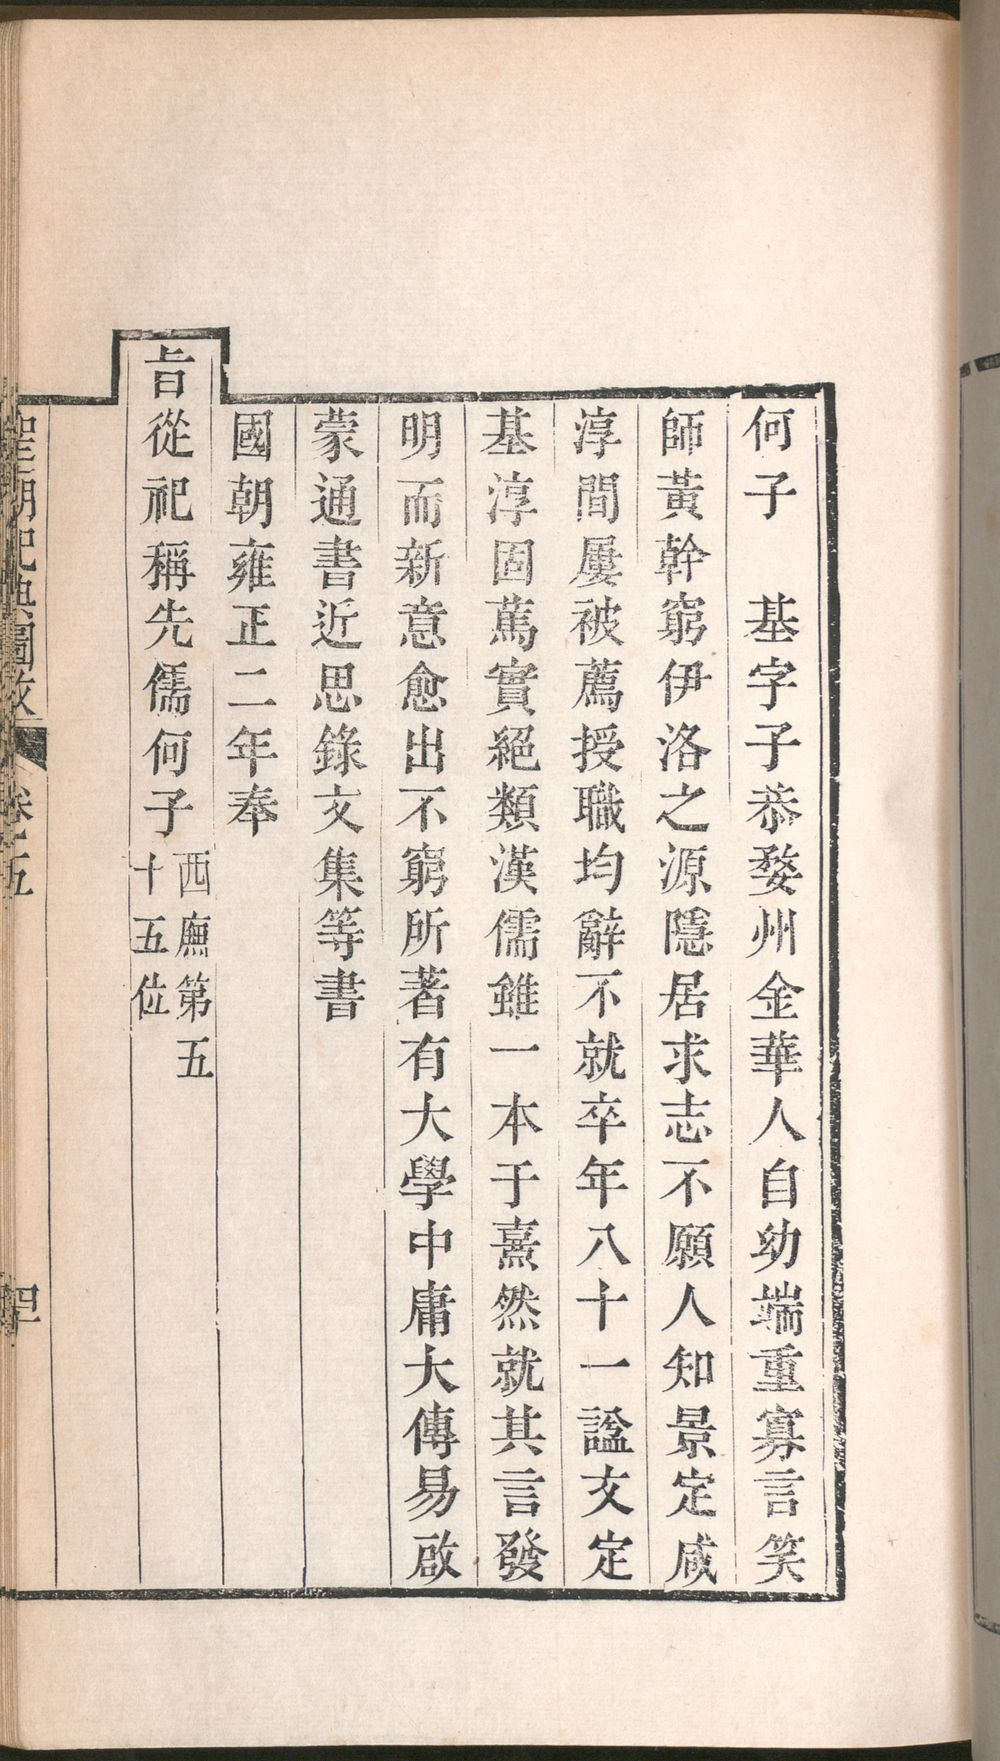 何子　基字子恭婺州金華人自幼端重寡言笑
師黃幹窮伊洛之源隱居求志不願人知景定咸
淳間屢被薦授職均辭不就卒年八十一諡文定
基淳固篤實絕類漢儒雖一本于熹然就其言發
明而新意愈出不窮所著有大學中庸大傳易啟
蒙通書近思錄文集等書
國朝雍正二年奉
旨從祀稱先儒何子西廡第五
十五位
聖廟祀典圖考　卷五　四